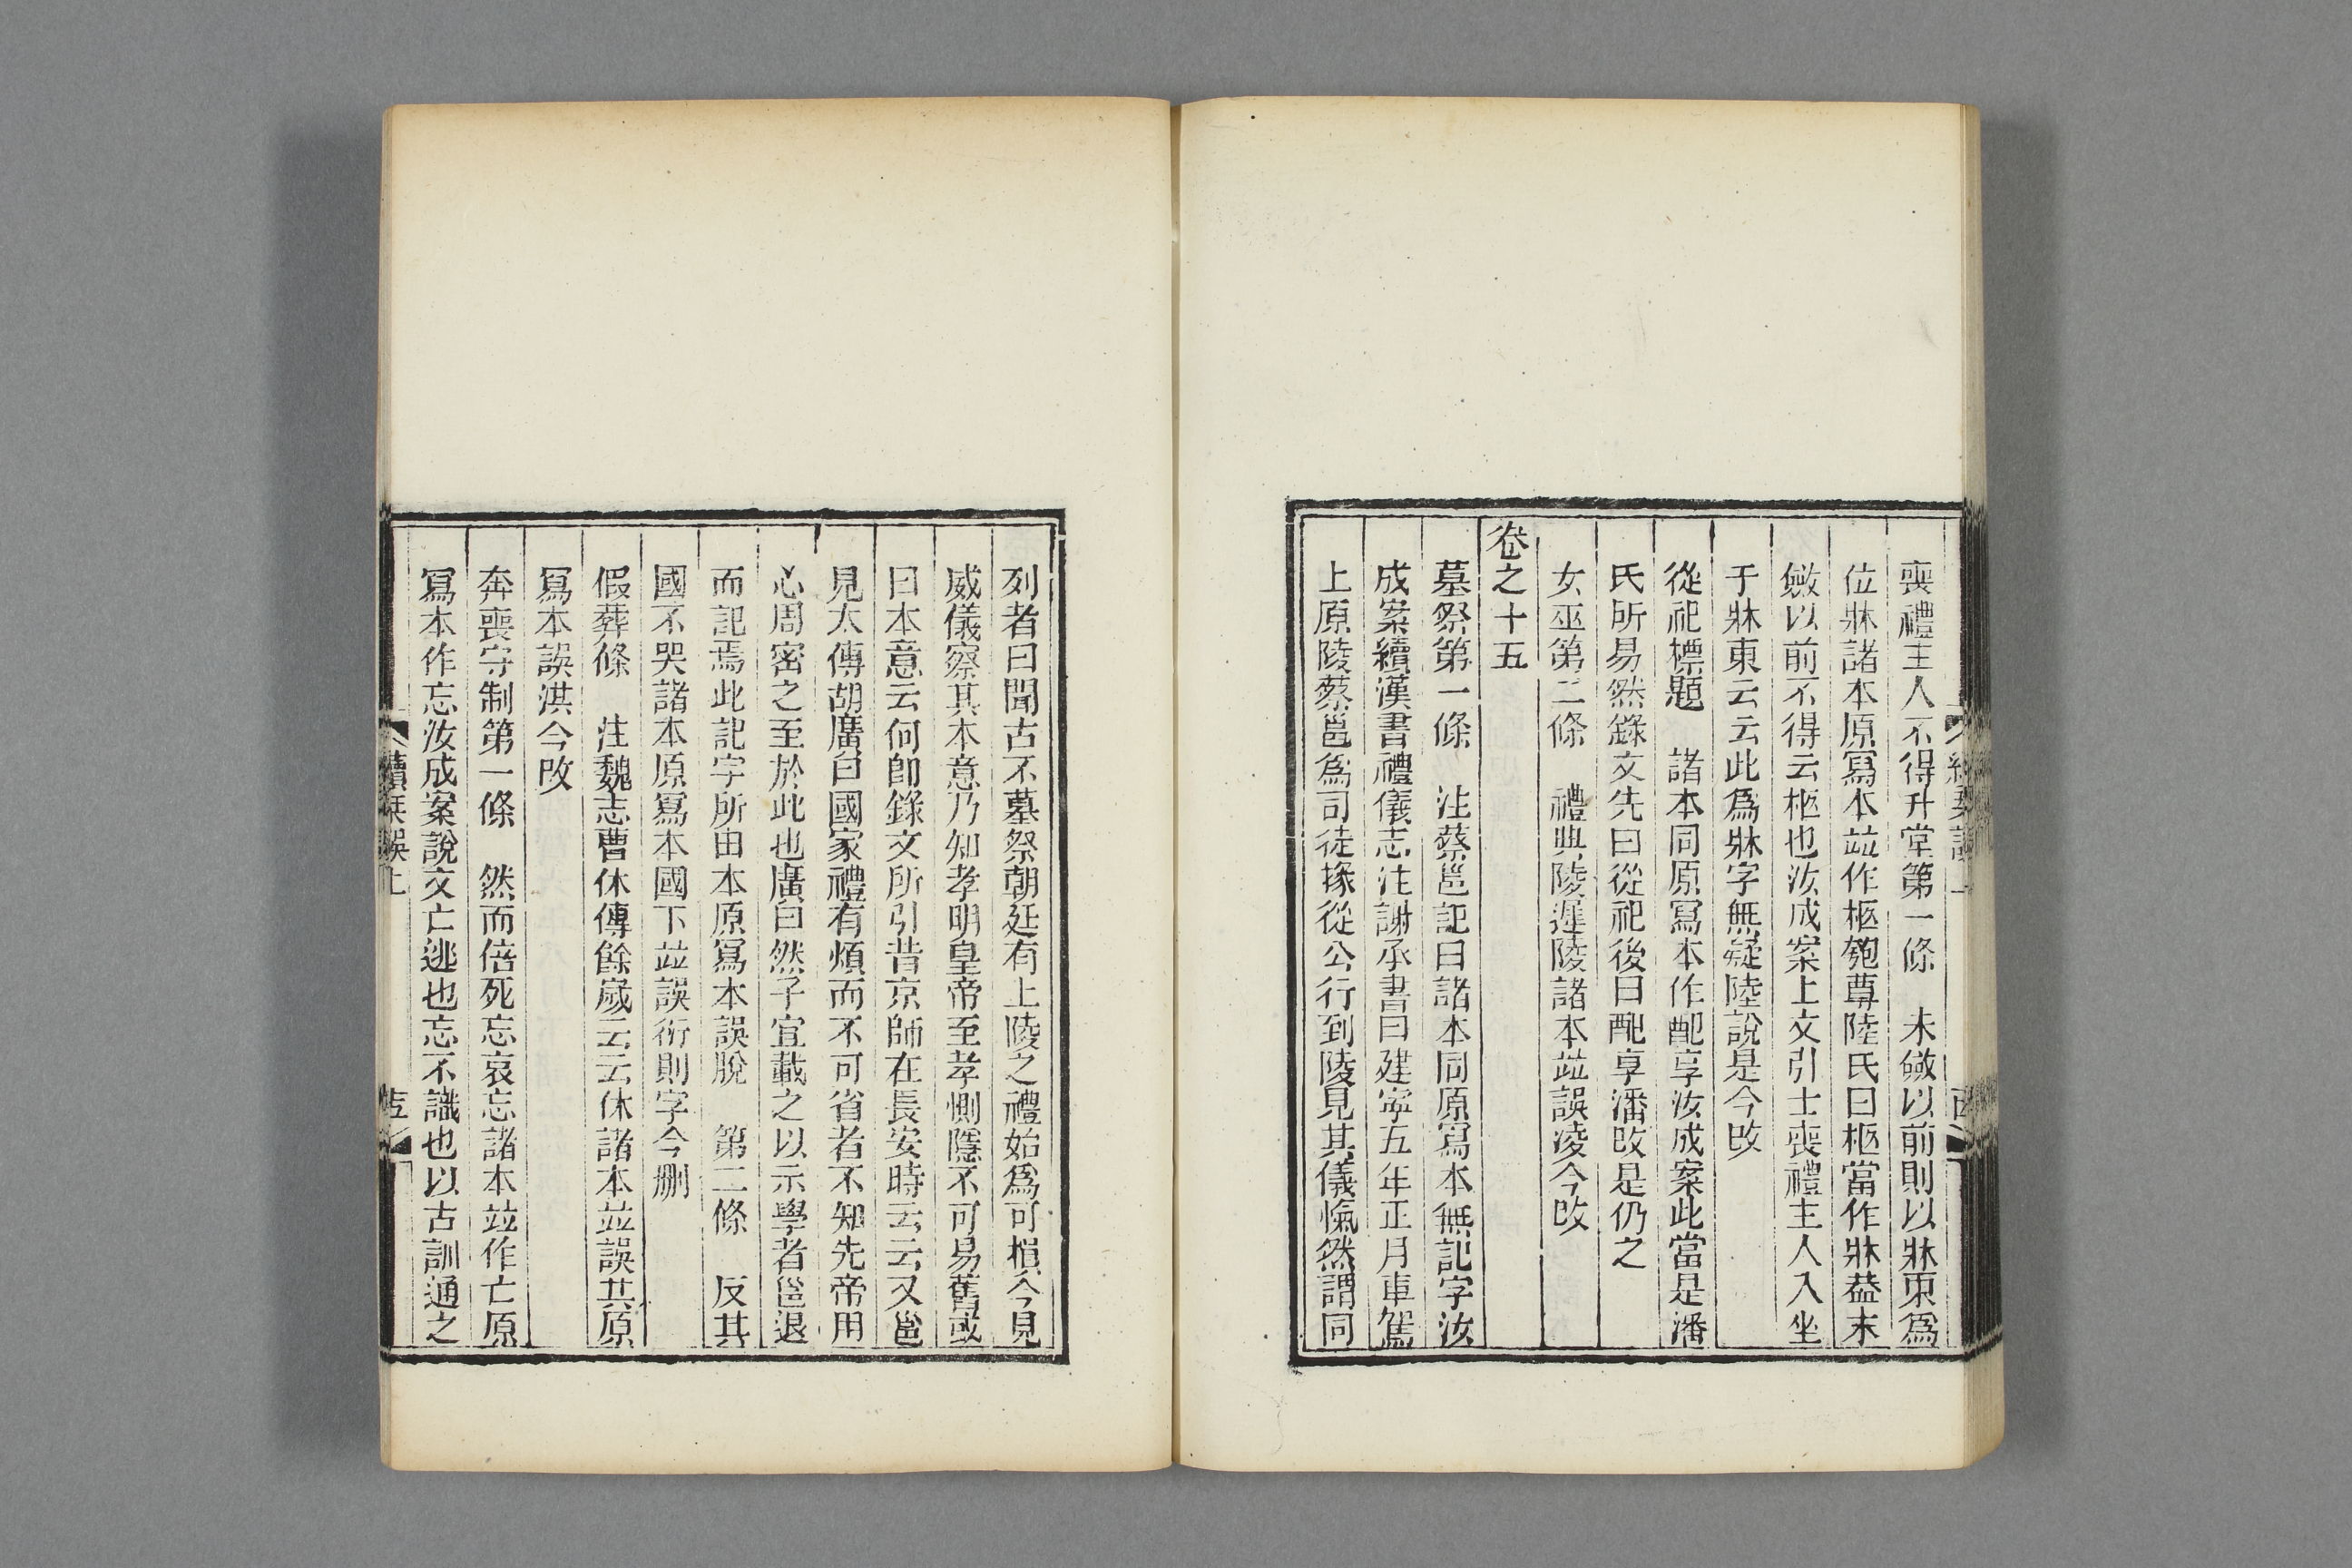 喪禮主人不得升堂第一條　未斂以前則以牀東爲
位牀諸本原寫本竝作柩匏尊陸氏曰柩當作牀葢未
斂以前不得云柩也汝成案上文引士喪禮主人入坐
于牀東云云此爲牀字無疑陸說是今改
從祀標題　諸本同原寫本作配享汝成案此當是潘
氏所易然錄文先曰從祀後曰配享潘改是仍之
女巫第二條　禮典陵遲陵諸本竝誤凌今改
卷之十五
墓祭第一條　注蔡邕記曰諸本同原寫本無記字汝
成案續漢書禮儀志注謝承書曰建寧五年正月車駕
上原陵蔡邕爲司徒掾從公行到陵見其儀愾然謂同
列者曰聞古不墓祭朝廷有上陵之禮始爲可損今見
威儀察其本意乃知孝明皇帝至孝惻隱不可易舊或
曰本意云何卽錄文所引昔京師在長安時云云又邕
見太傅胡廣曰國家禮有煩而不可省者不知先帝用
心周密之至於此也廣曰然子宜載之以示學者邕退
而記焉此記字所由本原寫本誤脫　第二條　反其
國不哭諸本原寫本國下竝誤衍則字今刪
假葬條　注魏志曹休傳餘歲云云休諸本竝誤其原
寫本誤洪今改
奔喪守制第一條　然而倍死忘哀忘諸本竝作亡原
寫本作忘汝成案說文亡逃也忘不識也以古訓通之
續栞誤上